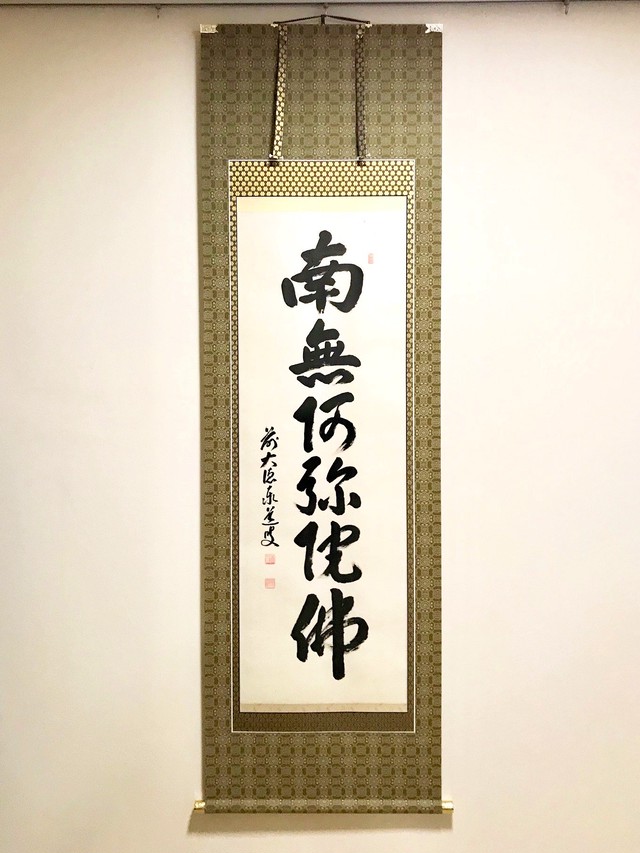 南無阿弥陀佛
前大徳泉道叟